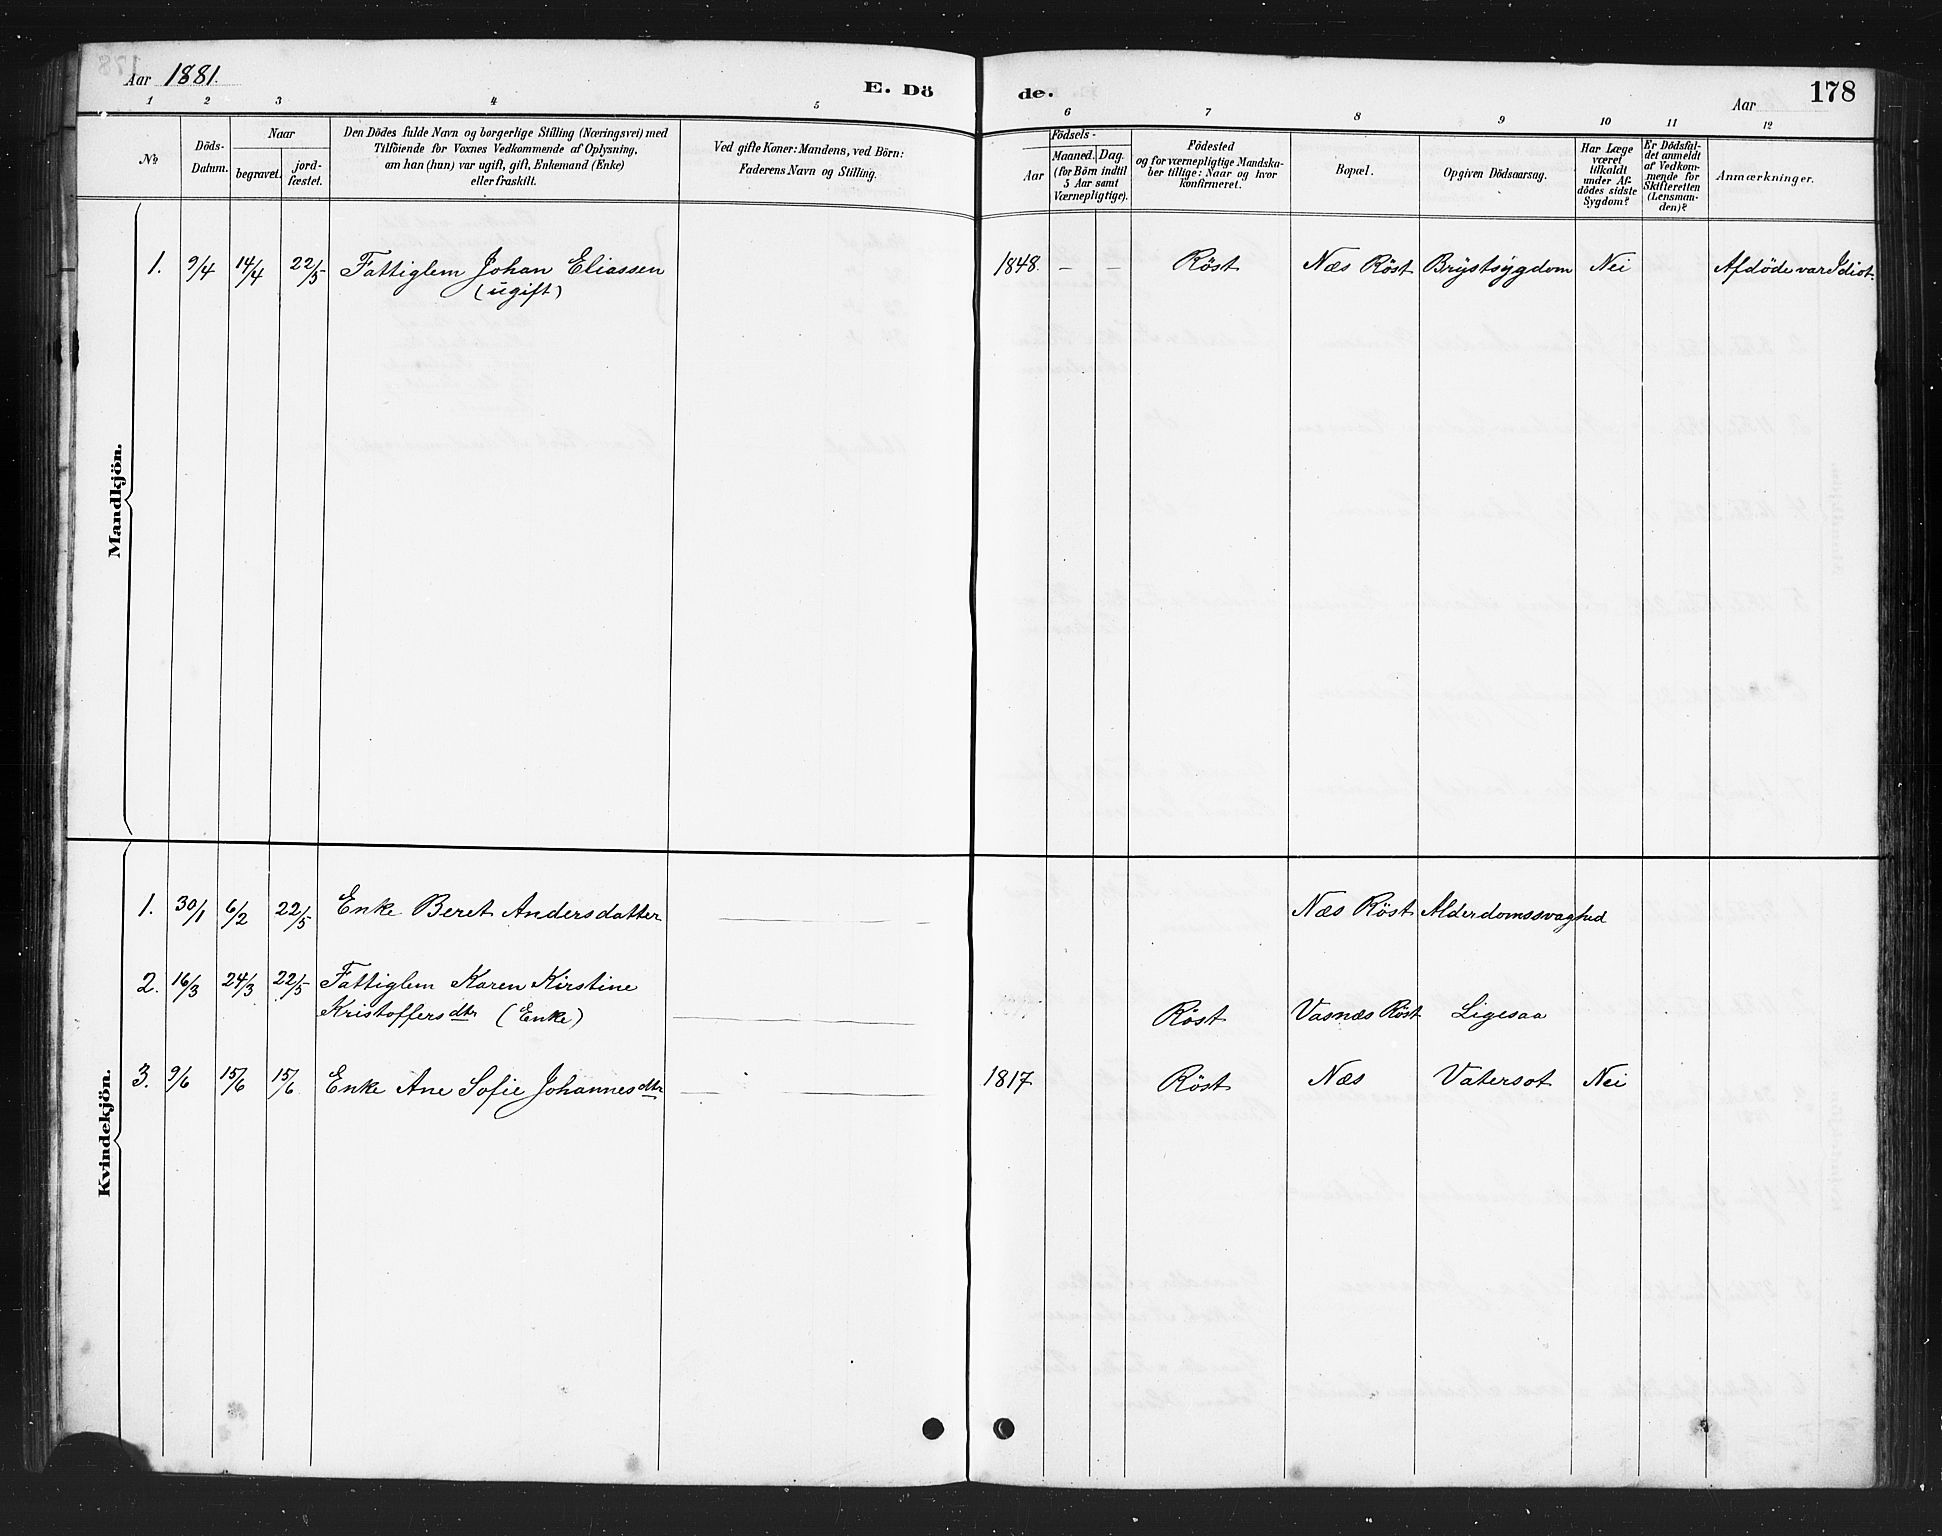 Aar 1881.
E. Dö
de.
Aar
178
1 2 3 4 5 6 7 8 9 10 11 12
No
Döds-
Datum.
Naar
begravet.
jord-
fæstet.
Den Dödes fulde Navn og borgerlige Stilling (Næringsvei) med
Tilföiende for Voxnes Vedkommende af Oplysning,
om han (hun) var ugift, gift, Enkemand (Enke)
eller fraskilt.
Ved gifte Koner: Mandens, ved Börn:
Faderens Navn og Stilling.
Födsels-
Aar
Maaned. Dag.
(for Börn indtil
5 Aar samt
Værnepligtige).
Födested
og for værnepligtige Mandska-
ber tillige: Naar og hvor
konfirmeret.
Bopæl.
Opgiven Dödsaarsag.
Har Læge
været
tilkaldt
under Af-
dödes sidste
Sygdom?
Er Dödsfal-
det anmeldt
af Vedkom-
mende for
Skifteretten
(Lensman-
den)?
Anmærkninger.
Mandkjön.
1. 9/4 14/4 22/5 Fattiglem Johan Eliassen 1848. — — Röst Næs Röst Brystsygdom Nei Afdöde var Idiot.
(ugift)
Kvindekjön.
1. 30/1 6/2 22/5 Enke Beret Andersdatter Næs Röst Alderdomssvaghed
2. 16/3 24/3 22/5 Fattiglem Karen Kirstine
Kristoffersdtr (Enke) Röst Vasnæs Röst Ligesaa
3. 9/6 15/6 15/6 Enke Ane Sofie Johannesdtr 1817 Röst Næs Vatersot Nei